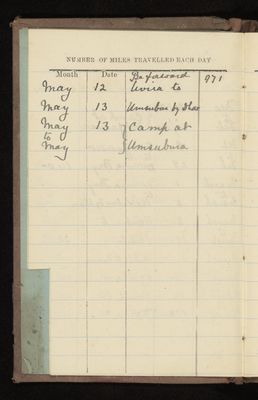 NUMBER OF MILES TRAVELLED EACH DAY
Month Date Bt forward 971
May 12 Uvira to
May 13 Umsubua by
May 13 Camp at
to
May Umsubuia